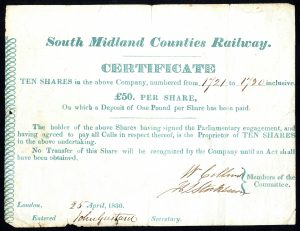 South Midland Counties Railway.
CERTIFICATE
TEN SHARES in the above Company, numbered from 1721 to 1730 inclusive
£50. PER SHARE,
On which a Deposit of One Pound per Share has been paid.
The holder of the above Shares having signed the Parliamentary engagement, and
having agreed to pay all Calls in respect thereof, is the Proprietor of TEN SHARES
in the above undertaking.
No Transfer of this Share will be recognized by the Company until an Act shall
have been obtained.
Members of the
Committee.
London, 25 April, 1836.
Entered John Secretary.